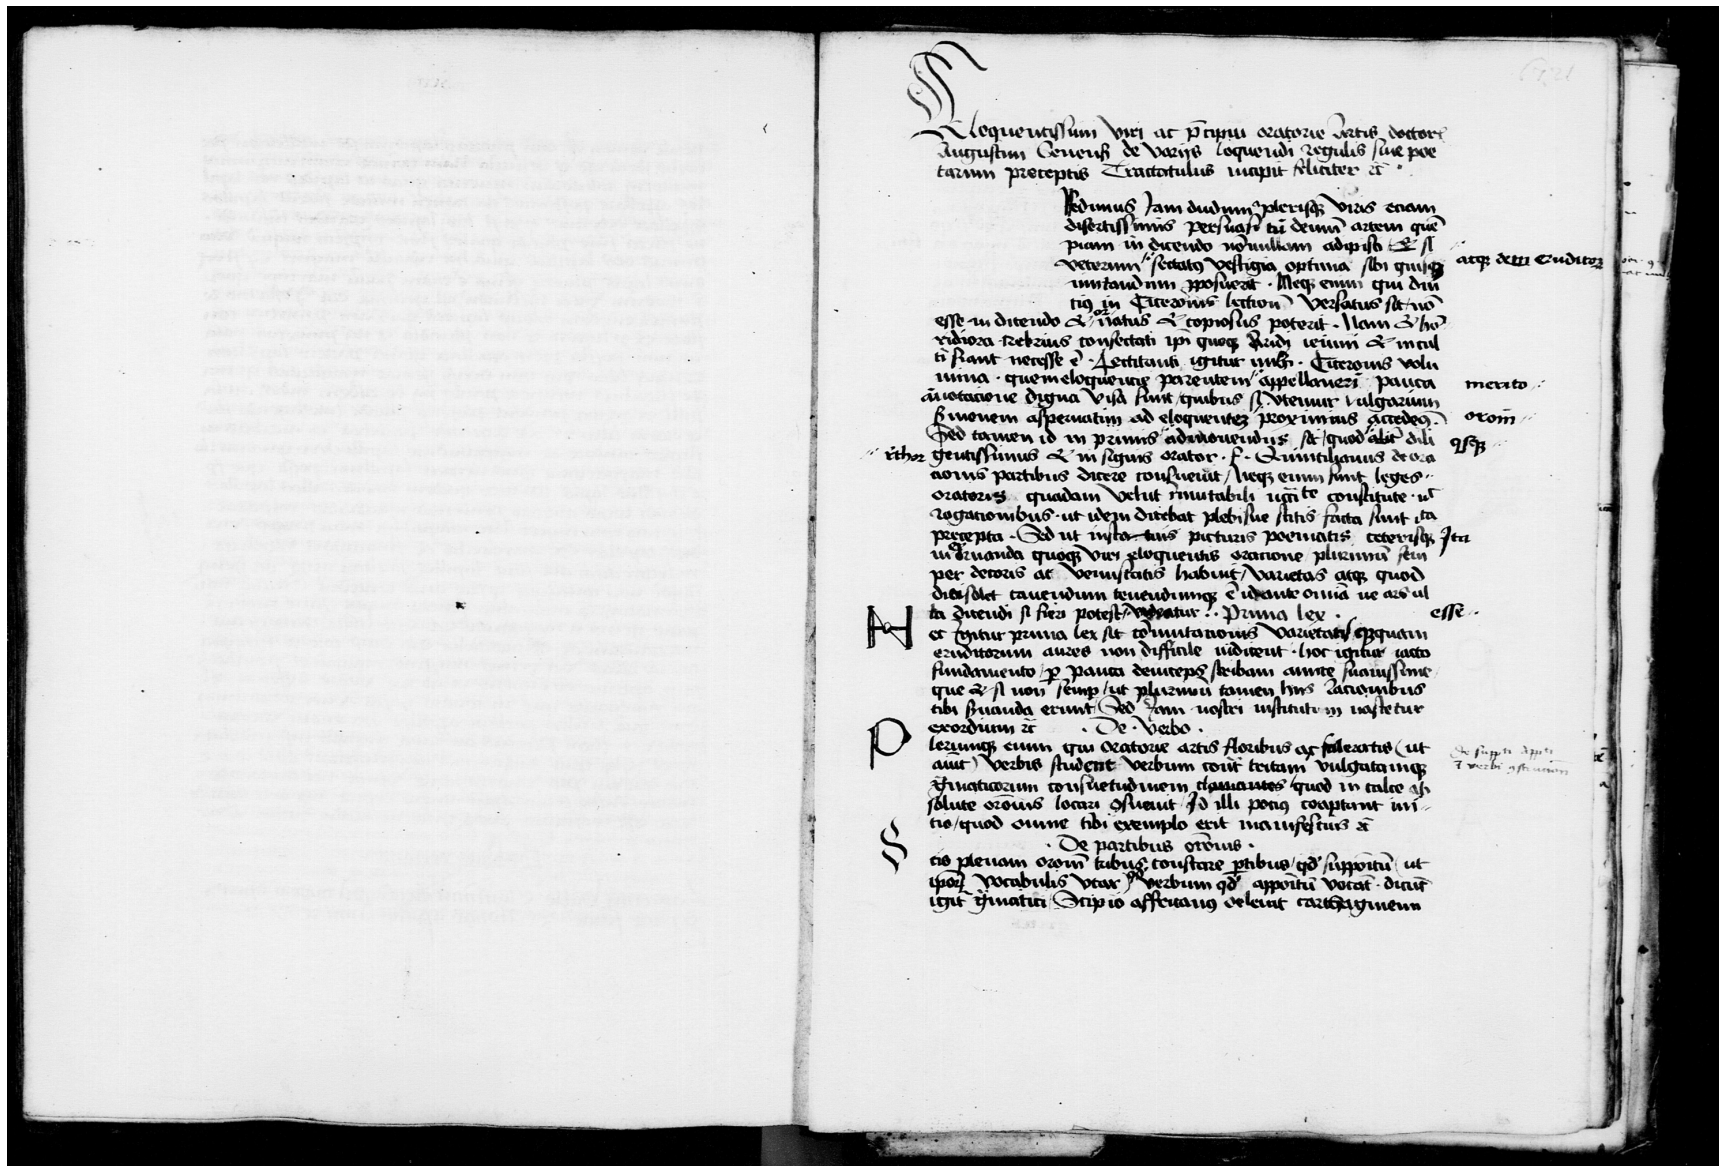 Eloquentissimi viri ac p̄cipui oratorie Artis doctoris
Augustini Senensis de varijs loquendi regulis siue poe
tarum preceptis Tractatulus incipit feliciter
Credimus Jam dudum a plerisque viris etiam
disertissimis persuasi tū demum artem quē
piam in dicendo nōnullam adipisci & si
veterum sectatus vestigia optima sibi quisque
atque
imitandum proposuerit . Neque enim qui diu
tius in Ciceronis lectionē versatus sit nō
esse in dicendo & ornatus & copiosus poterit . Nam & hor
ridiora crebrius consectati ipsi quoque Aridi ieiuni & incul
ti fiant necesse ē . Lectitanti igitur mihi . Ciceronis volu
mina . quem eloquencie parentem appellauerī pauca
merito
annotacione digna visa sunt quibus si vtemur vulgarium
sermonem aspernatim ad eloquentiam proximius accedemus .
orōm
Sed tamen id in primis admonendus sit quod dili
rethor gentissimus & insignis orator . f . Quintilianus de ora
cionis partibus dicere consueuit Neque enim sunt leges
oratoris quadam velut immutabili necessitate constitute . ut
rogationibus . ut idem dicebat plebisue scitis facta sunt ita
precepta . Sed ut in picturis poematis ceterisque Ita
in ornanda quoque viri eloquentis oratione plurimū sem
per decoris ac venustatis habuit varietas atque quod
dici solet cauendum tenendumque ē id ante omnia ne ars ul
la dicendi si fieri potest videatur . . Prima lex . esse
N ec igitur prima lex sit cōmutacionis varietatis
eruditorum aures non difficile iudicent . hoc igitur iacto
fundamento per pauca deinceps scribam amice suauissime
que & si non semper ut plurimū tamen hijs racionibus
tibi seruanda erunt Sed Jam nostri instituti nascetur
exordium . De . Verbo .
P lerumque enim qui oratorie artis floribus ac faleratis ( ut
aiunt ) verbis student verbum contra tritam vulgatamque
grāmaticorum consuetudinem quod in calce ab
solute orōnis locari cōsueuit Id illi pocius coaptant ini
tio quod omne tibi exemplo erit manifestius
. De partibus orōnis .
S cis plenam orōm tribus constare partibus qd suppositū ut
ipsorum vocabulis vtar verbum qd appositū vocāt . dicūt
igit̄ grāmatici Scipio affricanus deleuit carthaginem